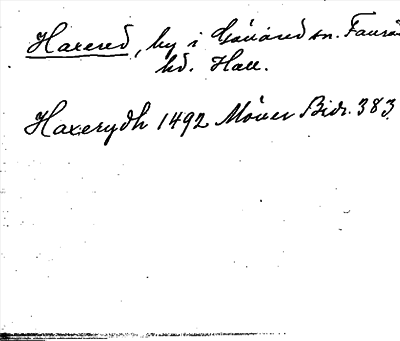 Haxered, by i Gällared sn. Faurås
hd. Hall.
Haxerydh 1492 Möller Bidr. 383